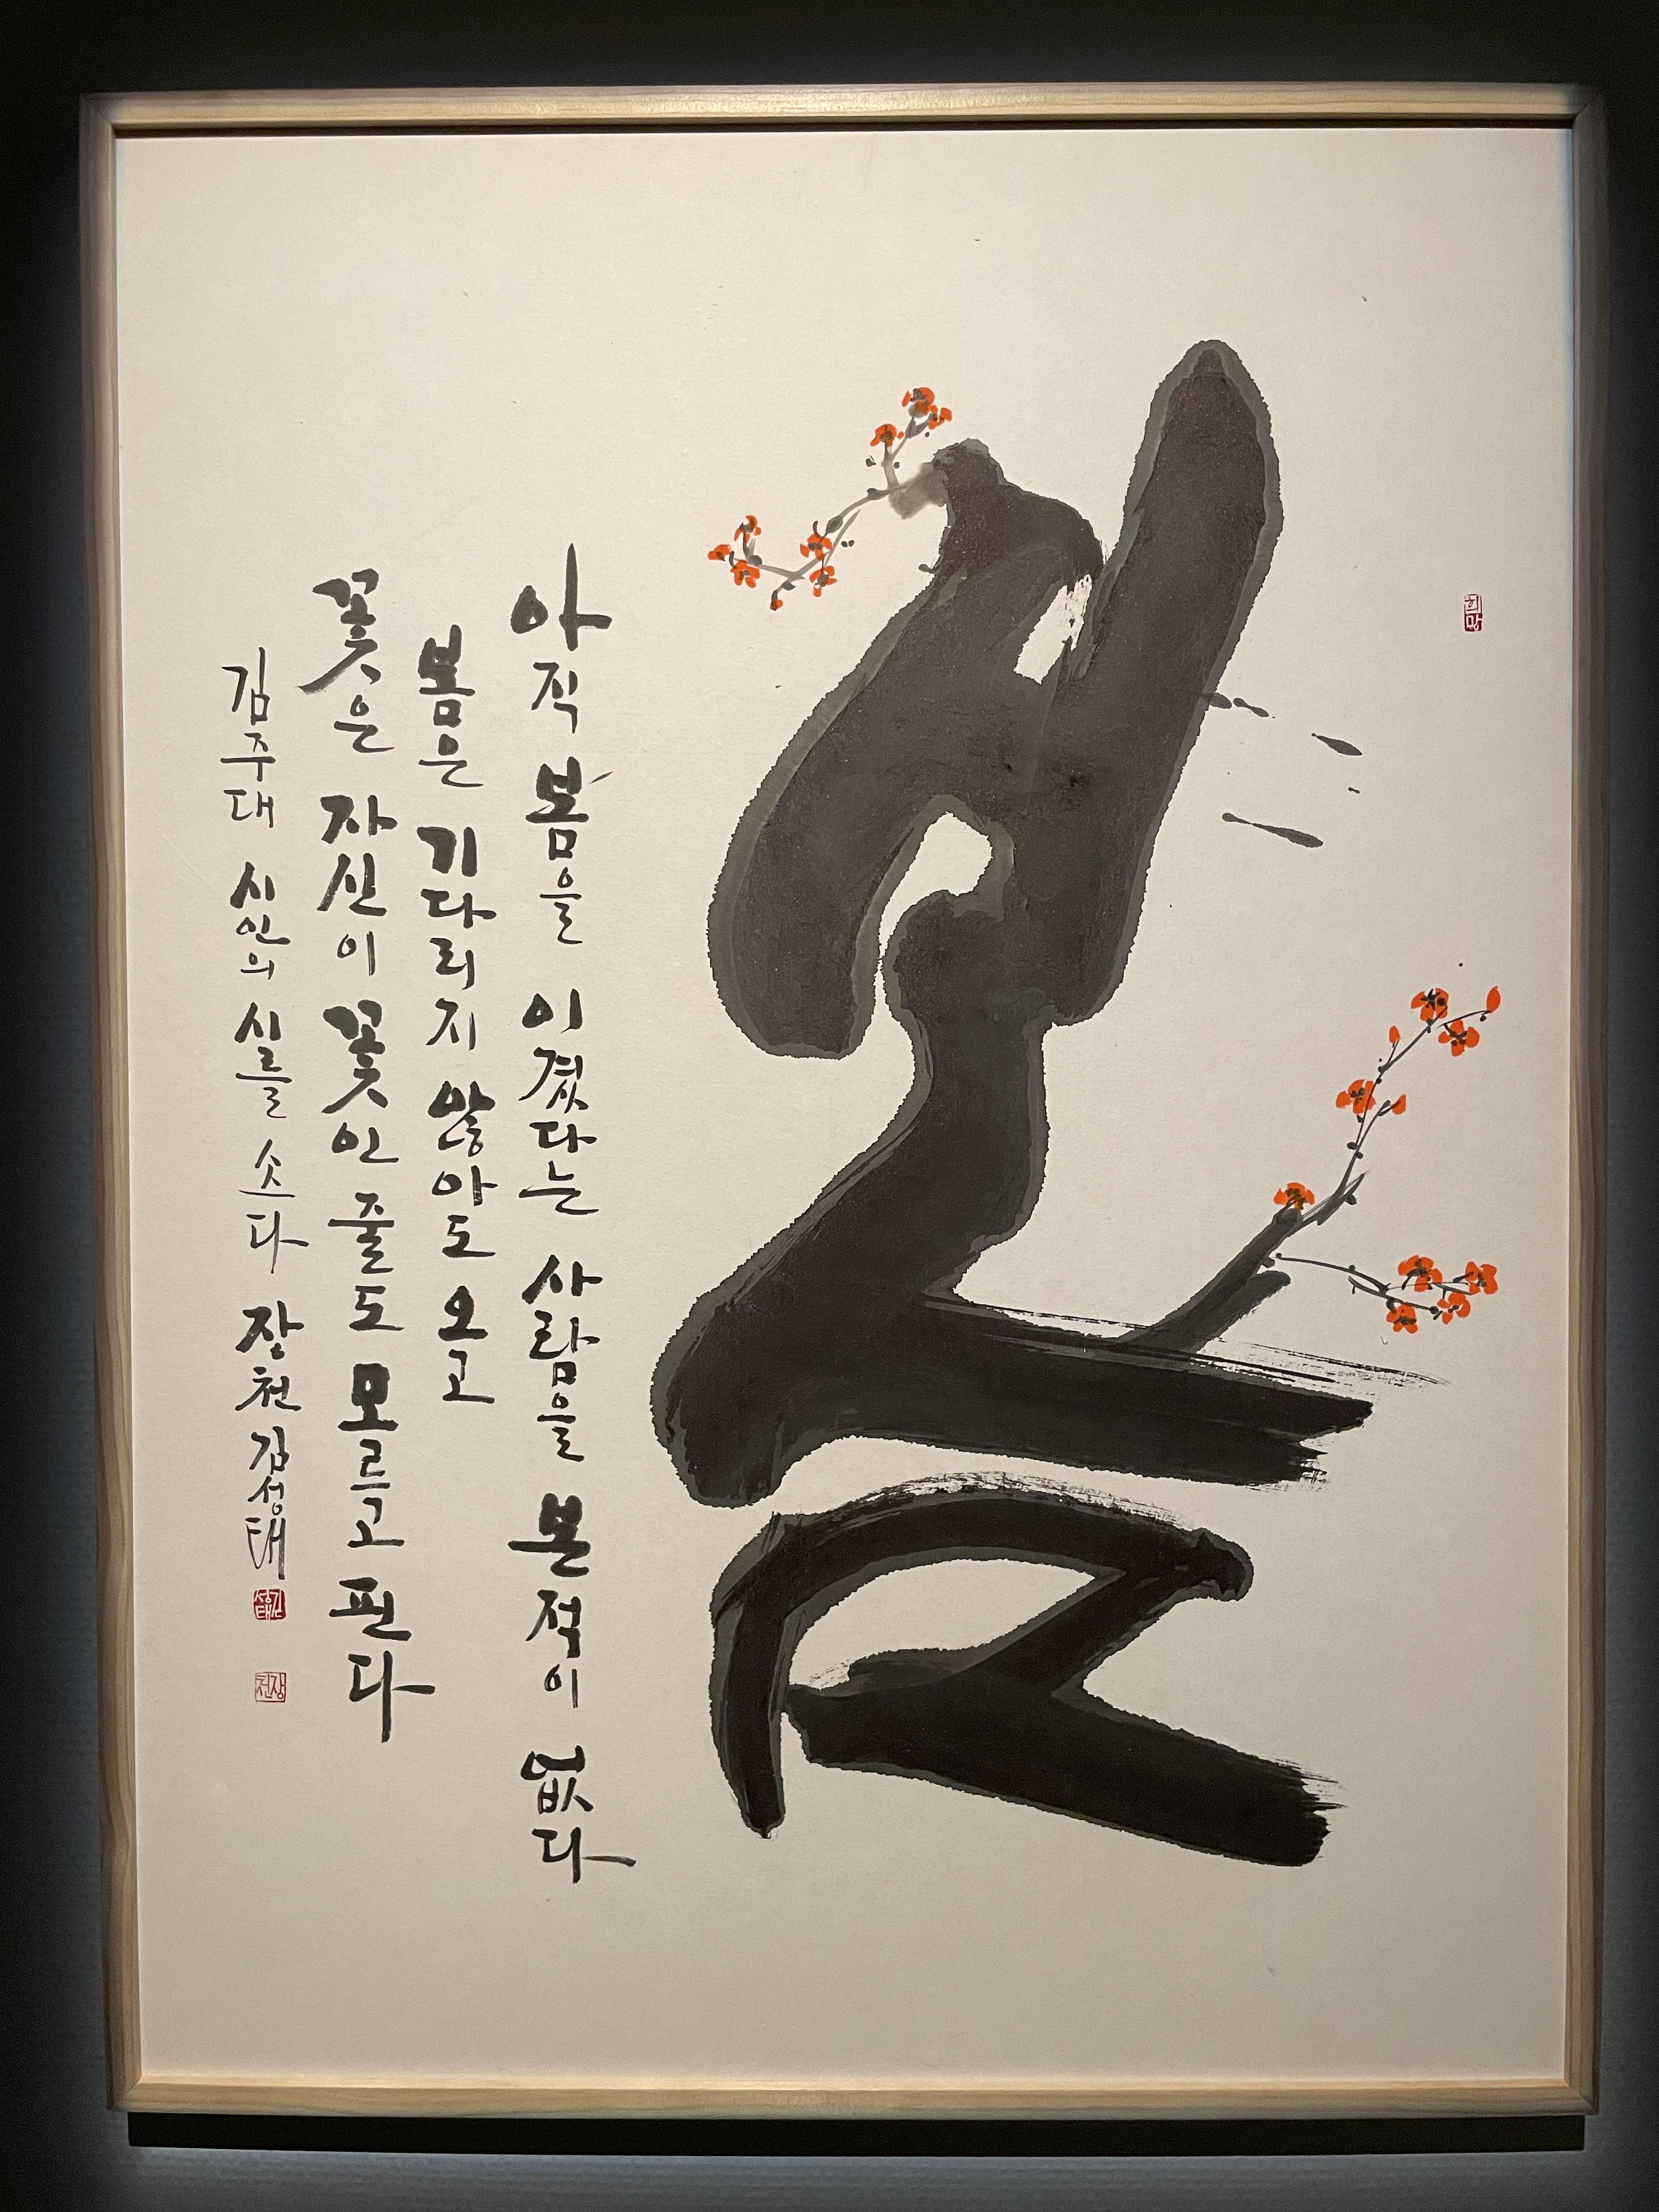 희망
봄
아직 봄을 이겼다는 사람을 본 적이 없다
봄은 기다리지 않아도 오고
꽃은 자신이 꽃인 줄도 모르고 핀다
김주대 시인의 시를 쓰다 장천 김성태
김성태
장천